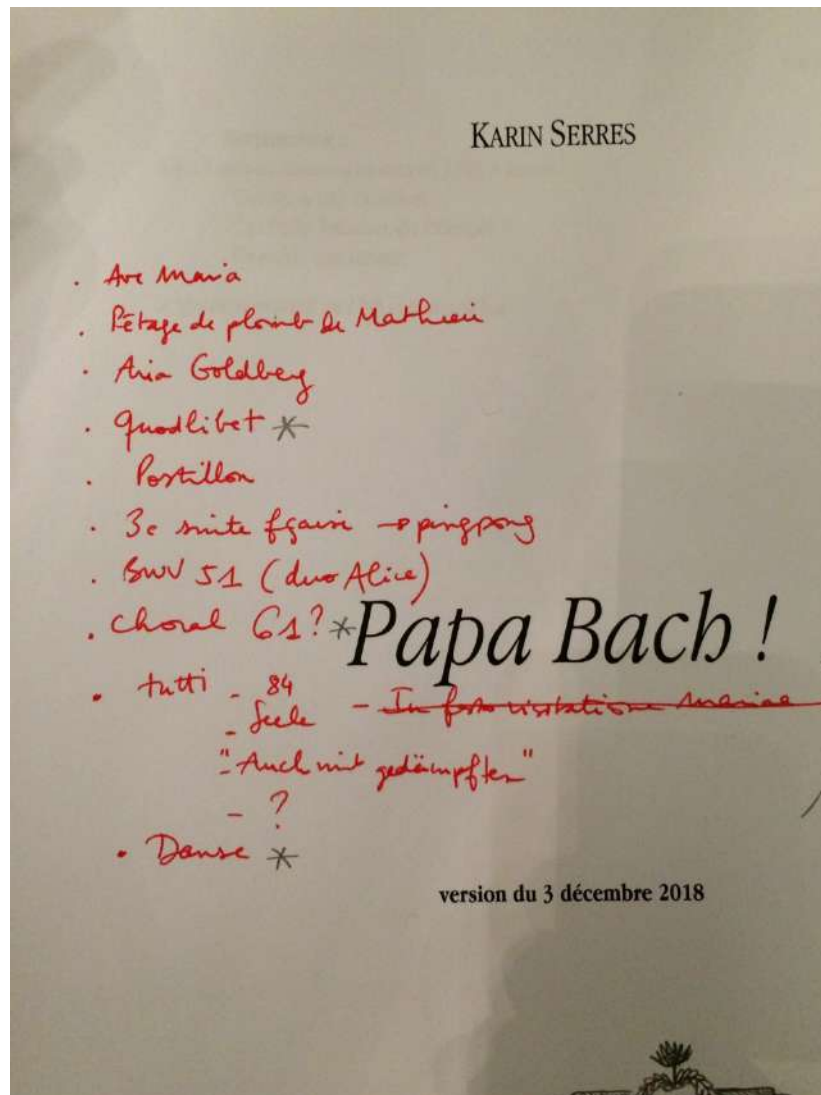 KARIN SERRES
. Ave Maria
. Pétage de plomb de Mathieu
. Aria Goldberg
. Quodlibet *
. Postillon
. 3e suite fçaise → pingpong
. BWV 51 (duo Alice)
. Choral 61? *
Papa Bach !
. tutti - 84
- Seele - In festo visitatione Mariae
- "Auch mit gedämpften"
- ?
. Danse *
version du 3 décembre 2018